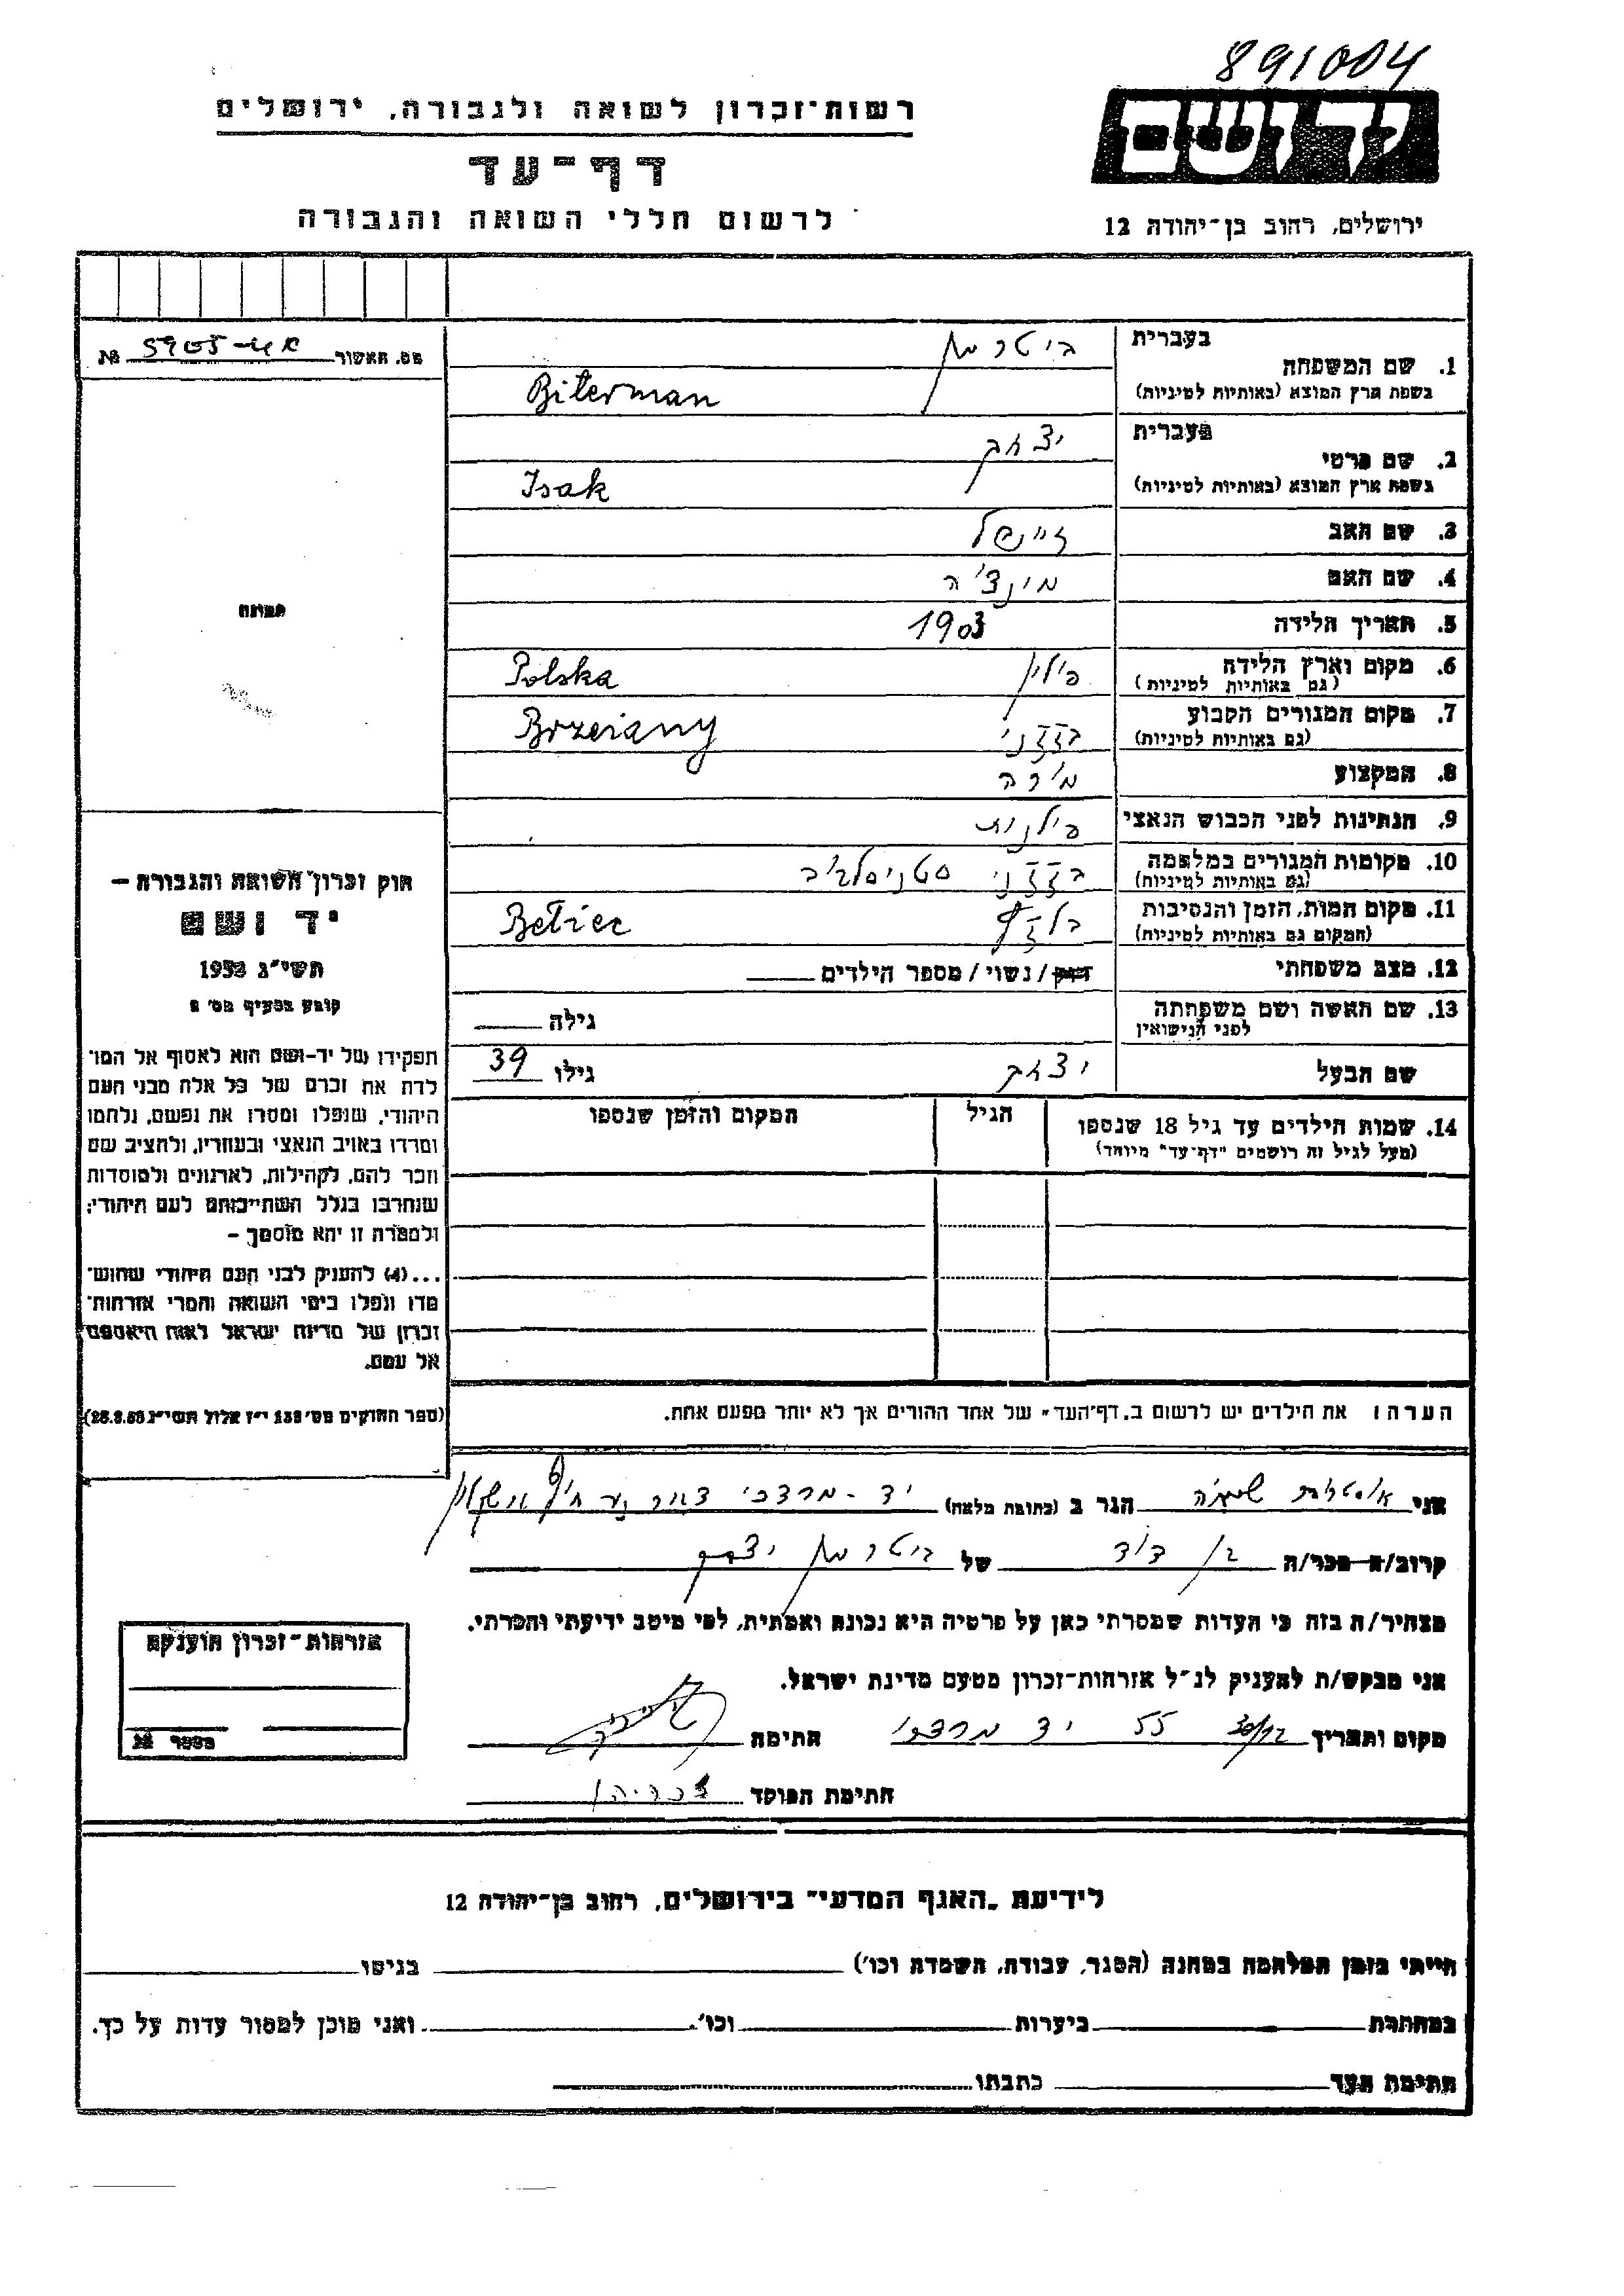 891004
יד ושם
רשות-זכרון לשואה ולגבורה, ירושלים
דף-עד
לרשום חללי השואה והגבורה
ירושלים, רחוב בן-יהודה 12
מס. האשור №
בעברית ביטרמן
1. שם המשפחה
בשפת ארץ המוצא (באותיות לטיניות) Biterman
בעברית יצחק
2. שם פרטי
בשפת ארץ המוצא (באותיות לטיניות) Isak
3. שם האב זיינפל
4. שם האם מינצ'ה
5. תאריך הלידה 1903
6. מקום וארץ הלידה פולין Polska
(גם באותיות לטיניות)
7. מקום המגורים הקבוע Brzeziany
(גם באותיות לטיניות)
8. המקצוע מורה
9. הנתינות לפני הכבוש הנאצי פולנית
10. מקומות המגורים במלחמה
(גם באותיות לטיניות)
11. מקום המות, הזמן והנסיבות Bełżec
(המקום גם באותיות לטיניות)
12. מצב משפחתי רווק/נשוי/מספר הילדים
13. שם האשה ושם משפחתה גילה
לפני הנישואין
שם הבעל יצחק גילו 39
14. שמות הילדים עד גיל 18 שנספו הגיל המקום והזמן שנספו
(מעל לגיל זה רושמים "דף-עד" מיוחד)
הערה: את הילדים יש לרשום ב„דף-העד" של אחד ההורים אך לא יותר מפעם אחת.
תמונה
חוק זכרון השואה והגבורה –
יד ושם
תשי"ג 1953
קובע בסעיף מס' 2
תפקידו של יד-ושם הוא לאסוף אל המו־
לדת את זכרם של כל אלה מבני העם
היהודי, שנפלו ומסרו את נפשם, נלחמו
ומרדו באויב הנאצי ובעוזריו, ולהציב שם
וזכר להם, לקהילות, לארגונים ולמוסדות
שנחרבו בגלל השתייכותם לעם היהודי;
ולמטרה זו יהא מוסמך –
...(4) להעניק לבני העם היהודי שהוש־
מדו ונפלו בימי השואה והמרי אזרחות־
זכרון של מדינת ישראל לאות היאספם
אל עמם.
(ספר החוקים מס' 132 י"ז אלול תשי"ג 28.8.53)
אני הגר ב (כתובת מלאה) יד-מרדכי דואר נע חוף אשקלון
קרוב/ה מכר/ה בן דוד של ביטרמן יצחק
מצהיר/ה בזה כי העדות שמסרתי כאן על פרטיה היא נכונה ואמתית, לפי מיטב ידיעתי והכרתי.
אני מבקש/ת להעניק לנ"ל אזרחות-זכרון מטעם מדינת ישראל.
מקום ותאריך 55 יד מרדכי חתימה
חתימת המוסד
אזרחות-זכרון הוענקה
מספר №
לידיעת „האגף המדעי" בירושלים, רחוב בן-יהודה 12
הייתי בזמן המלחמה במחנה (הסגר, עבודה, השמדה וכו') בגיטו
במחתרת ביערות וכו'. ואני מוכן למסור עדות על כך.
חתימת העד כתבתו